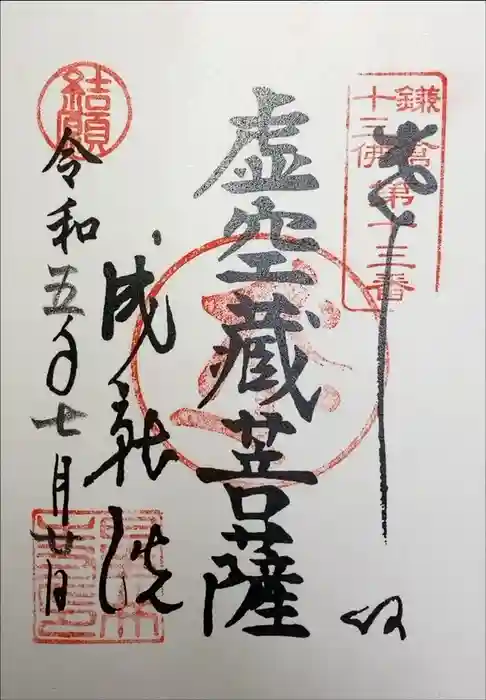 鎌倉
十三佛
第十三番
奉拝
虚空藏菩薩
成就院
結願
令和五年七月廿日